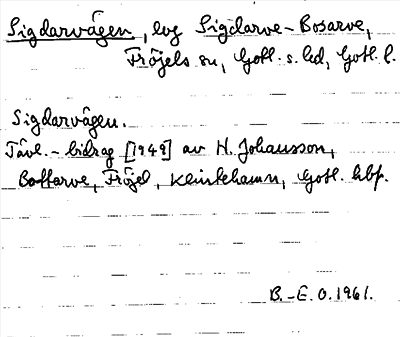 Sigdarvägen, vg Sigdarve - Bosarve,
Fröjels sn, Gotl. s. hd, Gotl. l.
Sigdarvägen.
Tävl. - bidrag [1949] av H. Johansson,
Bottarve, Fröjel, Klintehamn, Gotl. hbf.
B.-E. O. 1961.